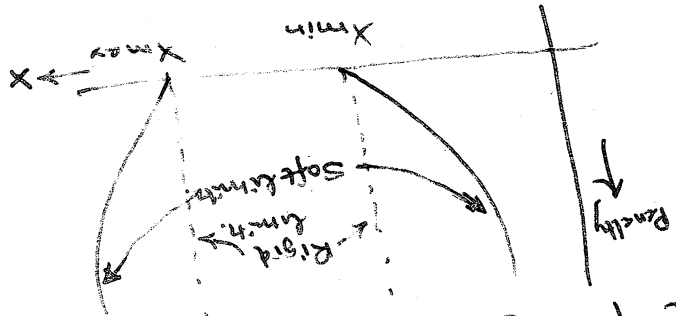 Penalty
Rigid
limit.
Soft limits.
Xmin
Xmax
X